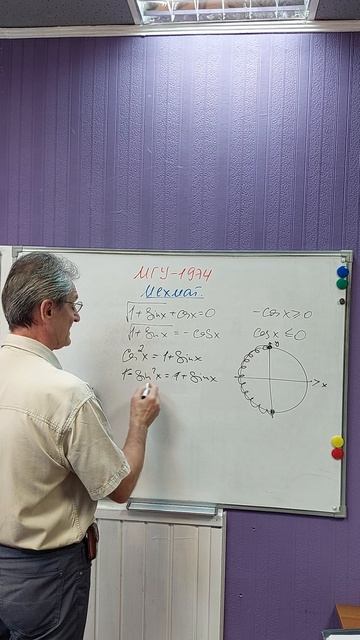 МГУ-1974
Мехмат.
√(1+sinx)+cosx=0
√(1+sinx) = -cosx
cos²x = 1+sinx
1-sin²x = 1+sinx
-cosx≥0
cosx ≤0
y
x